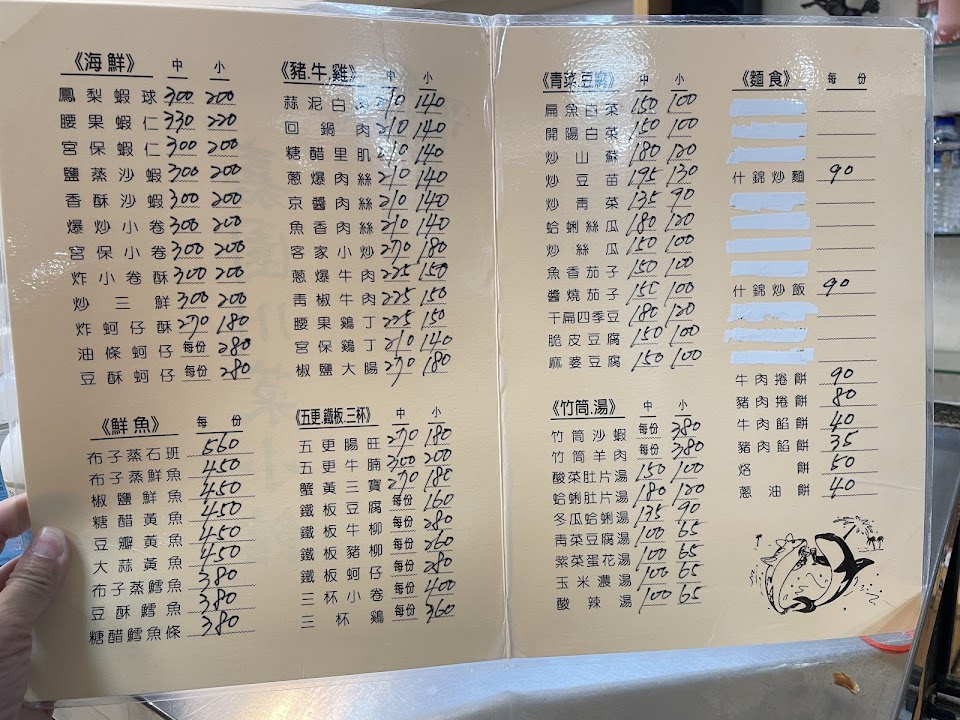 《海鮮》 中 小
鳳梨蝦球 300 200
腰果蝦仁 330 220
宮保蝦仁 300 200
鹽蒸沙蝦 300 200
香酥沙蝦 300 200
爆炒小卷 300 200
宮保小卷 300 200
炸小卷酥 300 200
炒三鮮 300 200
炸蚵仔酥 270 180
油條蚵仔 每份 280
豆酥蚵仔 每份 280
《鮮魚》 每份
布子蒸石班 560
布子蒸鮮魚 450
椒鹽鮮魚 450
糖醋黃魚 450
豆瓣黃魚 450
大蒜黃魚 450
布子蒸鱈魚 380
豆酥鱈魚 380
糖醋鱈魚條 380
《豬.牛.雞》 中 小
蒜泥白肉 210 140
回鍋肉 210 140
糖醋里肌 210 140
蔥爆肉絲 210 140
京醬肉絲 210 140
魚香肉絲 210 140
客家小炒 270 180
蔥爆牛肉 225 150
青椒牛肉 225 150
腰果鷄丁 225 150
宮保鷄丁 210 140
椒鹽大腸 270 180
《五更.鐵板.三杯》 中 小
五更腸旺 270 180
五更牛腩 300 200
蟹黃三寶 270 180
鐵板豆腐 每份 160
鐵板牛柳 每份 280
鐵板豬柳 每份 260
鐵板蚵仔 每份 280
三杯小卷 每份 400
三杯鷄 每份 360
《青菜.豆腐》 中 小
扁魚白菜 150 100
開陽白菜 150 100
炒山蘇 180 120
炒豆苗 195 130
炒青菜 135 90
蛤蜊絲瓜 180 120
炒絲瓜 150 100
魚香茄子 150 100
醬燒茄子 150 100
干扁四季豆 180 120
脆皮豆腐 150 100
麻婆豆腐 150 100
《竹筒.湯》 中 小
竹筒沙蝦 每份 380
竹筒羊肉 每份 380
酸菜肚片湯 150 100
蛤蜊肚片湯 180 120
冬瓜蛤蜊湯 135 90
青菜豆腐湯 100 65
紫菜蛋花湯 100 65
玉米濃湯 100 65
酸辣湯 100 65
《麵食》 每份
什錦炒麵 90
什錦炒飯 90
牛肉捲餅 90
豬肉捲餅 80
牛肉餡餅 40
豬肉餡餅 35
烙餅 50
蔥油餅 40